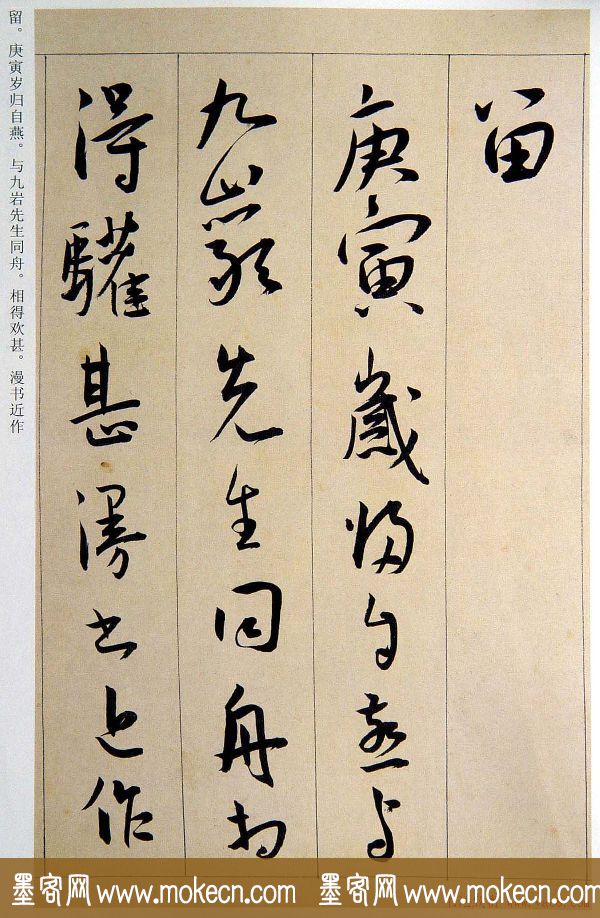 留
庚寅歲歸自燕與
九巖先生同舟相
得驩甚漫書近作
留。庚寅岁归自燕。与九岩先生同舟。相得欢甚。漫书近作
墨客网 www.mokecn.com 墨客网 www.mokecn.com